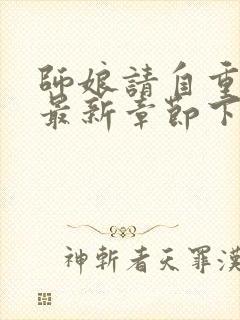 師娘請自重
最新章節下
神斬者天罪漢